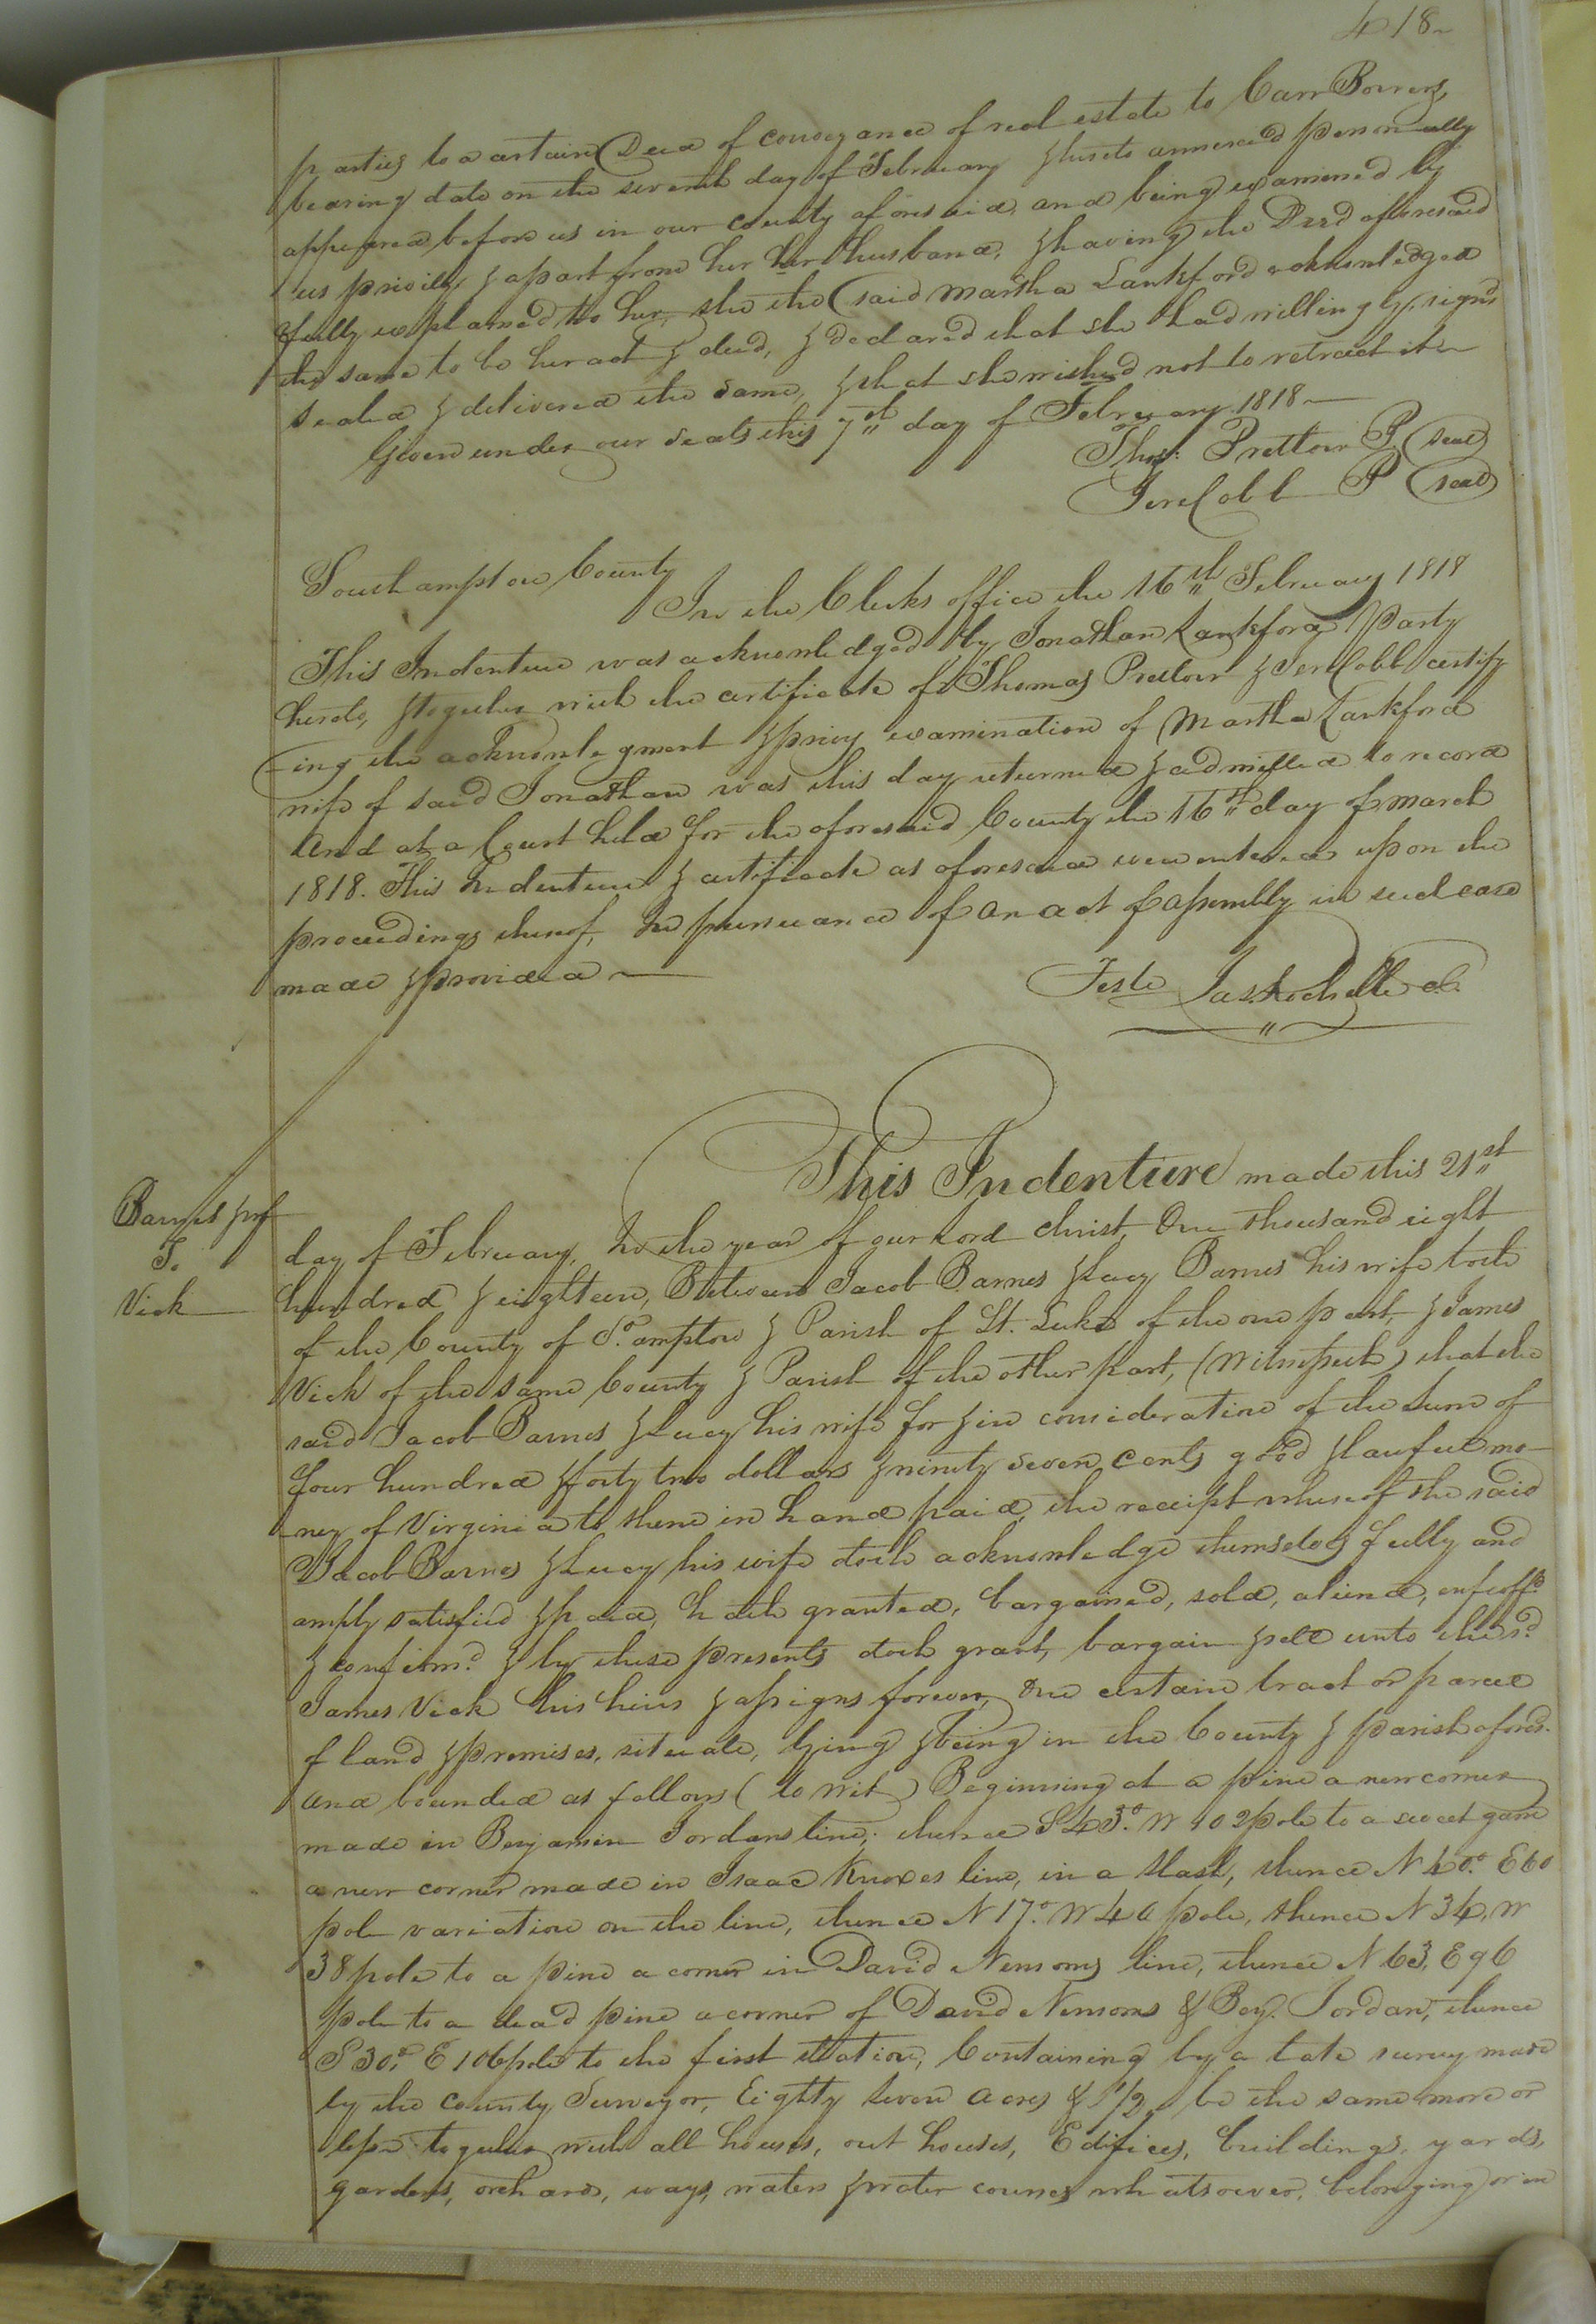 418
parties to a certain Deed of conveyance of real estate to Carr Bowers,
bearing date on the seventh day of February & hereto annexed personally
appeared before us in our county aforesaid, and being examined by
us privily & apart from her her husband, & having the Deed afforesaid
fully explained to her, she the said Martha Lankford acknowledged
the same to be her act & deed, & declared that she had willingly, signd
sealed & delivered the same, & that she wished not to retract it
Given under our seals this 7th day of February 1818
Thos: Pretlow P (seal)
Jere Cobb P (seal)
Southampton County
In the Clerks office the 16th February 1818
This Indenture was acknowledged by Jonathan Lankford Party
hereto, & together with the certificate of Thomas Pretlow & Jere Cobb certify
-ing the acknowlegment & privy examination of Martha Lankford
wife of said Jonathan was this day returned & admitted to record
And at a Court held for the aforesaid County the 16th day of March
1818. This Indenture & certificate as aforesaid were entered upon the
proceedings thereof, In pursuance of an act of assembly in such case
made & provided
Teste Jas Rochelle cl.
This Indenture made this 21st
Barnes & wf
To
Vick
day of February, In the year of our Lord Christ, One thousand eight
hundred & eighteen, Between Jacob Barnes & Lucy Barnes his wife both
of the County of So.ampton & Parish of St. Luke of the one part, & James
Vick of the same County & Parish of the other part, (Witnesseth) that the
said Jacob Barnes & Lucy his wife for & in consideration of the sum of
four hundred & forty two dollars & ninety seven cents good & lawful mo-
-ney of Virginia to them in hand paid, the receipt whereof the said
Jacob Barnes & Lucy his wife doth acknowledge themselves fully and
amply satisfied & paid, hath granted, bargained, sold, aliend, enfeoffd
& confirmd. & by these presents doth grant, bargain & sell unto the sd.
James Vick his heirs & assigns forever, One certain tract or parcel
of land & premises, situate, lying & being in the County & parish afores.
and bounded as follows (to wit) Beginning at a pine a new corner
made in Benjamin Jordans line; thence S 43° W 102 pole to a sweet gum
a new corner made in Isaac Knoxes line, in a slash, thence N 40° E 60
pole variation on the line, thence N 17° W 40 pole, thence N 34, W
38 pole to a pine a corner in David Newsoms line, thence N 63, E 96
pole to a dead pine a corner of David Newsoms & Benj. Jordan, thence
S 30,° E 106 pole to the first station, Containing by a late survey made
by the County Surveyor, Eighty seven acres & 1/2, be the same more or
less together with all houses, out houses, Edifices, buildings, yards,
gardens, orchards, ways, waters & water courses whatsoever, belonging or in